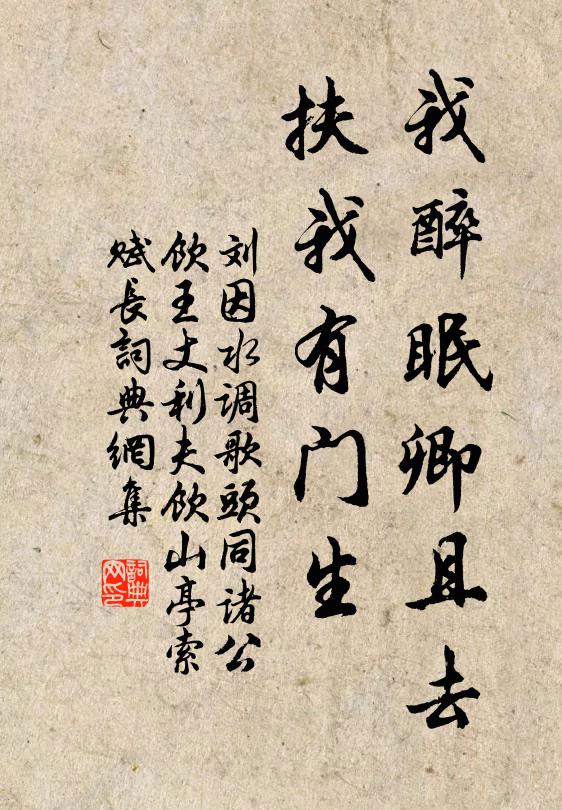 我醉眠卿且去
扶我有门生
刘因水调歌頭同诸公
饮王丈利夫饮山亭索
赋长詞典網集
詞典
网印